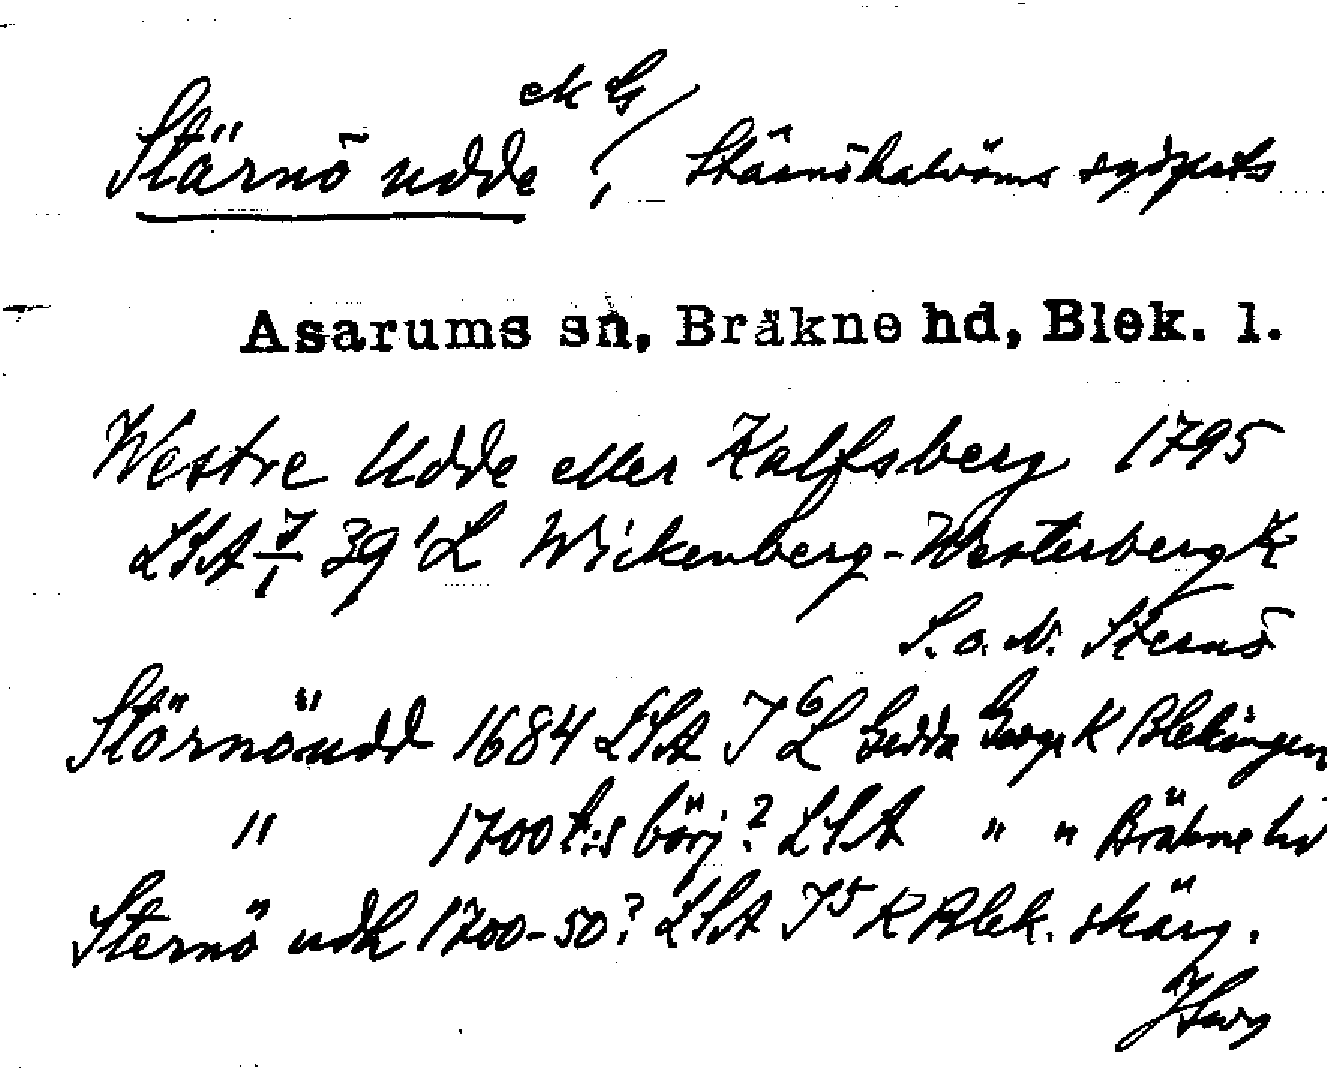 ek G
Stärnö udde, Stärnöhalvöns sydspets
Asarums sn, Bräkne hd, Blek. l.
Westre Udde eller Kalfsberg 1795
LSA I/1 39 'L Wickenberg-Westerberg K
S. o. N. Sternö
Störnöudd 1684 LSA I 6 L Gedda George K Blekingen
" 1700 t:s börj? LSA " " Bräkne hd
Sternö udd 1700-50? LSA I 5 K Blek. skärg.